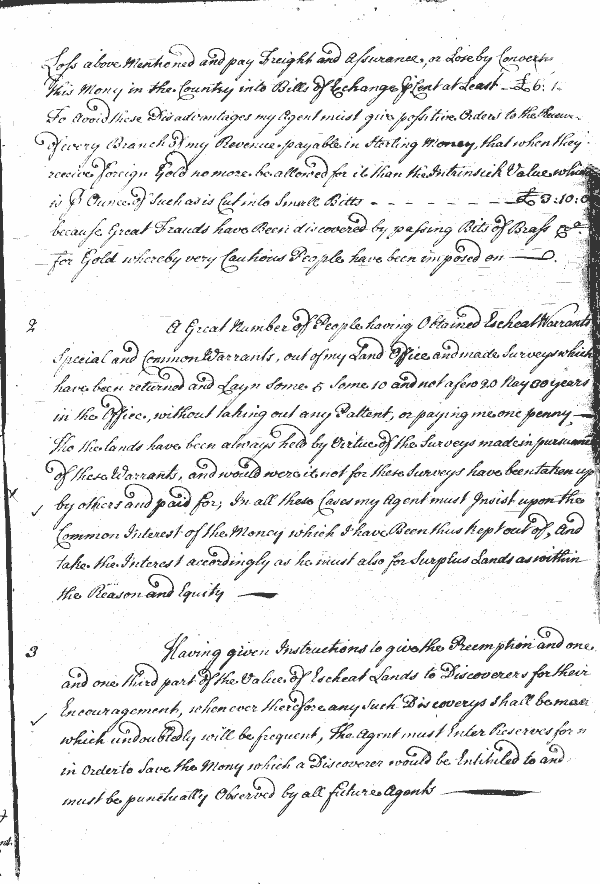 Loss above Mentioned and pay Freight and Assurance, or Lose by Convert
this Mony in the Country into Bills of Exchange P Cent at Least - £6:1-
To Avoid these Disadvantages my Agent must give possitive Orders to the Receiv-
of every Branch of my Revenue payable in Sterling Money, that when they
receive foreign Gold no more be allowed for it than the Intrinsick Value which
is P Ounce of Such as is Cut into Small Bitts - - - - - - £3:10:0
because Great Frauds have Been discovered by passing Bits of Brass &c
for Gold whereby very Cautious People have been imposed on
2 A Great Number of People having Obtained Escheat Warrants
Special and Common Warrants, out of my Land Office and made Surveys which
have been returned and Layn Some 5 Some 10 and not a few 20 Nay 30 years
in the Office, without taking out any Pattent, or paying me one penny,
tho the lands have been always held by Virtue of the Surveys made in pursuance
of these Warrants, and would were it not for these Surveys have been taken up
by others and paid for; In all these Cases my Agent must Insist upon the
Common Interest of the Money which I have Been thus kept out of, And
take the Interest accordingly as he must also for Surplus Lands as within
the Reason and Equity
3 Having given Instructions to give the Preemption and one
and one third part of the Value of Escheat Lands to Discoverers for their
Encouragement, whenever therefore any Such Discoverys shall be made
which undoubtedly will be frequent, the Agent must Enter Reserves for
in Order to Save the Mony which a Discoverer would be Entituled to and
must be punctually Observed by all future Agents